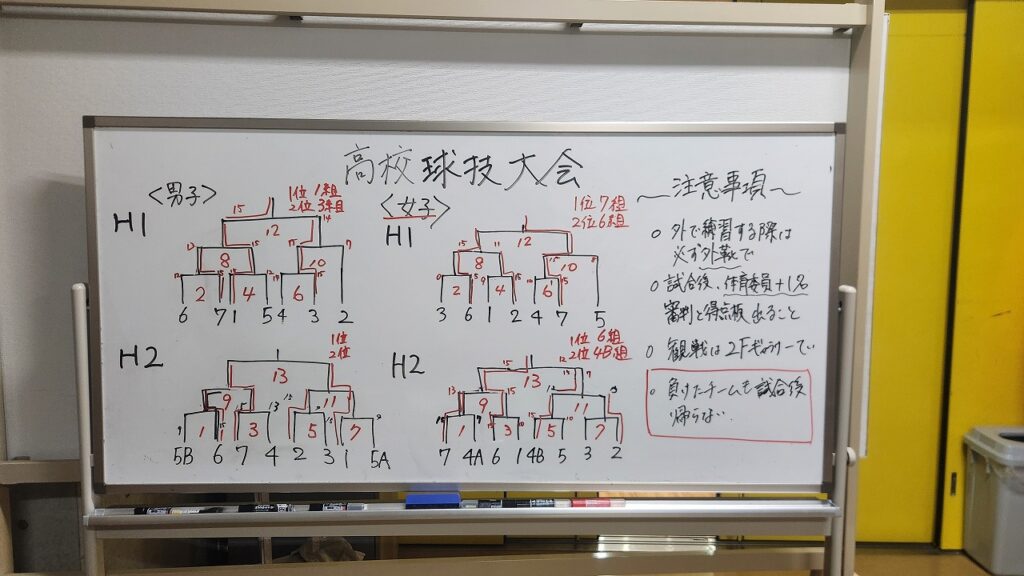 高校球技大会
<男子>
H1
1位 1組
2位 3組
15 14
12
8 10
2 4 6
6 7 1 5 4 3 2
H2
1位
2位
13
9 11
1 3 5 7
5B 6 7 4 2 3 1 5A
<女子>
H1
1位 7組
2位 6組
12
8 10
2 4 6
3 6 1 2 4 7 5
H2
1位 6組
2位 4B組
13
9 11
1 3 5 7
7 4A 6 1 4B 5 3 2
〜注意事項〜
○ 外で練習する際は
必ず外靴で
○ 試合後、体育委員+1名
審判と得点板 出ること
○ 観戦は2Fぎゃらりーで
○ 負けたチームも試合後
帰らない